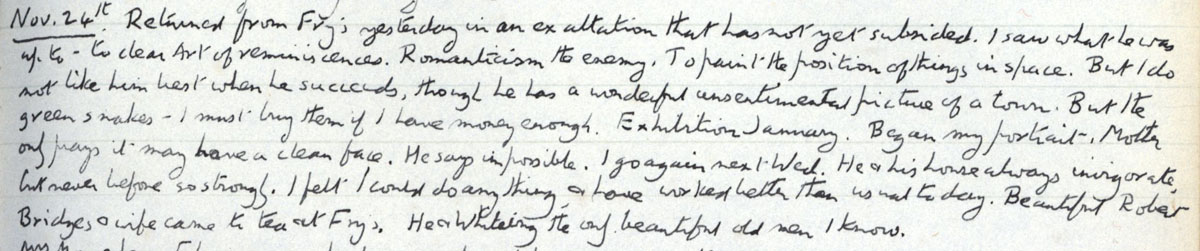 Nov. 24th. Returned from Fry's yesterday in an exaltation that has not yet subsided. I saw what he was
up to - to clear Art of reminiscences. Romanticism the enemy. To paint the position of things in space. But I do
not like him best when he succeeds, though he has a wonderful unsentimental picture of a town. But the
green snakes - I must buy them if I have money enough. Exhibition January. Began my portrait. Mother
only prays it may have a clean face. He says impossible. I go again next Wed. He & his house always invigorate,
but never before so strongly. I felt I could do anything, & have worked better than usual today. Beautiful Robert
Bridges & wife came to tea at Frys. He & Whiteing the only beautiful old men I know.